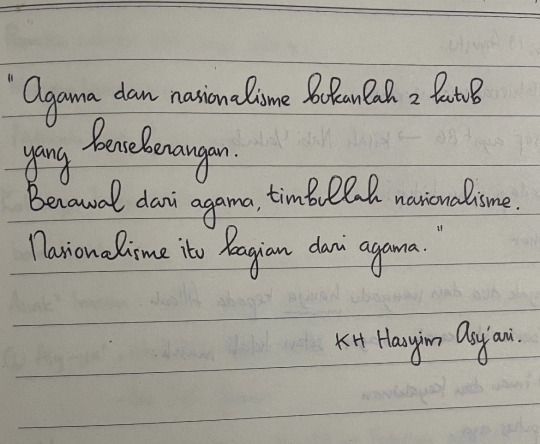 "Agama dan nasionalisme bukanlah 2 kutub
yang berseberangan.
Berawal dari agama, timbullah nasionalisme.
Nasionalisme itu bagian dari agama."
KH Hasyim Asy'ari.